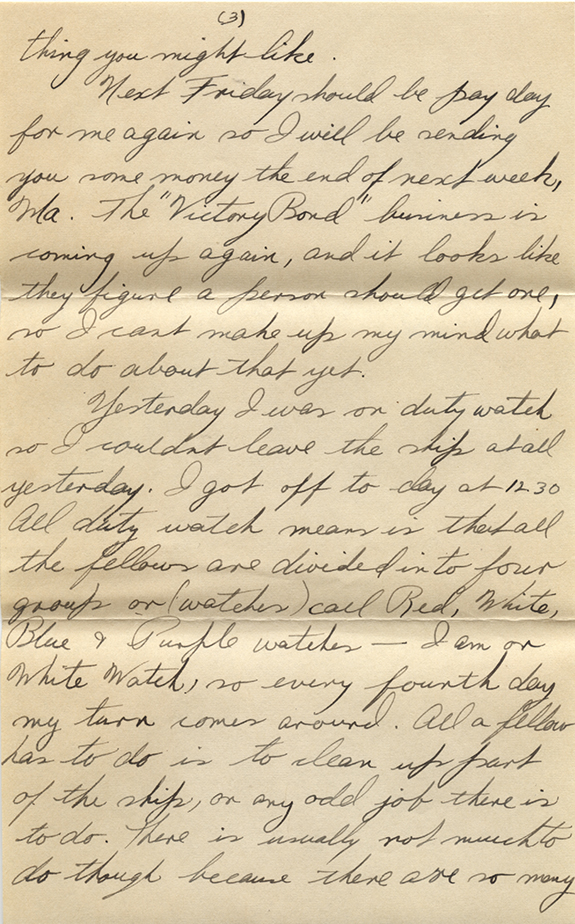 (3)
thing you might like.
Next Friday should be pay day
for me again so I will be sending
you some money the end of next week,
Ma. The "Victory Bond" business is
coming up again, and it looks like
they figure a person should get one,
so I cant make up my mind what
to do about that yet.
Yesterday I was on duty watch
so I couldnt leave the ship at all
yesterday. I got off to day at 1230
All duty watch means is that all
the fellows are divided into four
groups or (watches) call Red, White,
Blue & Purple watches — I am on
White Watch, so every fourth day
my turn comes around. All a fellow
has to do is to clean up part
of the ship, or any odd job there is
to do. There is usually not much to
do though because there are so many